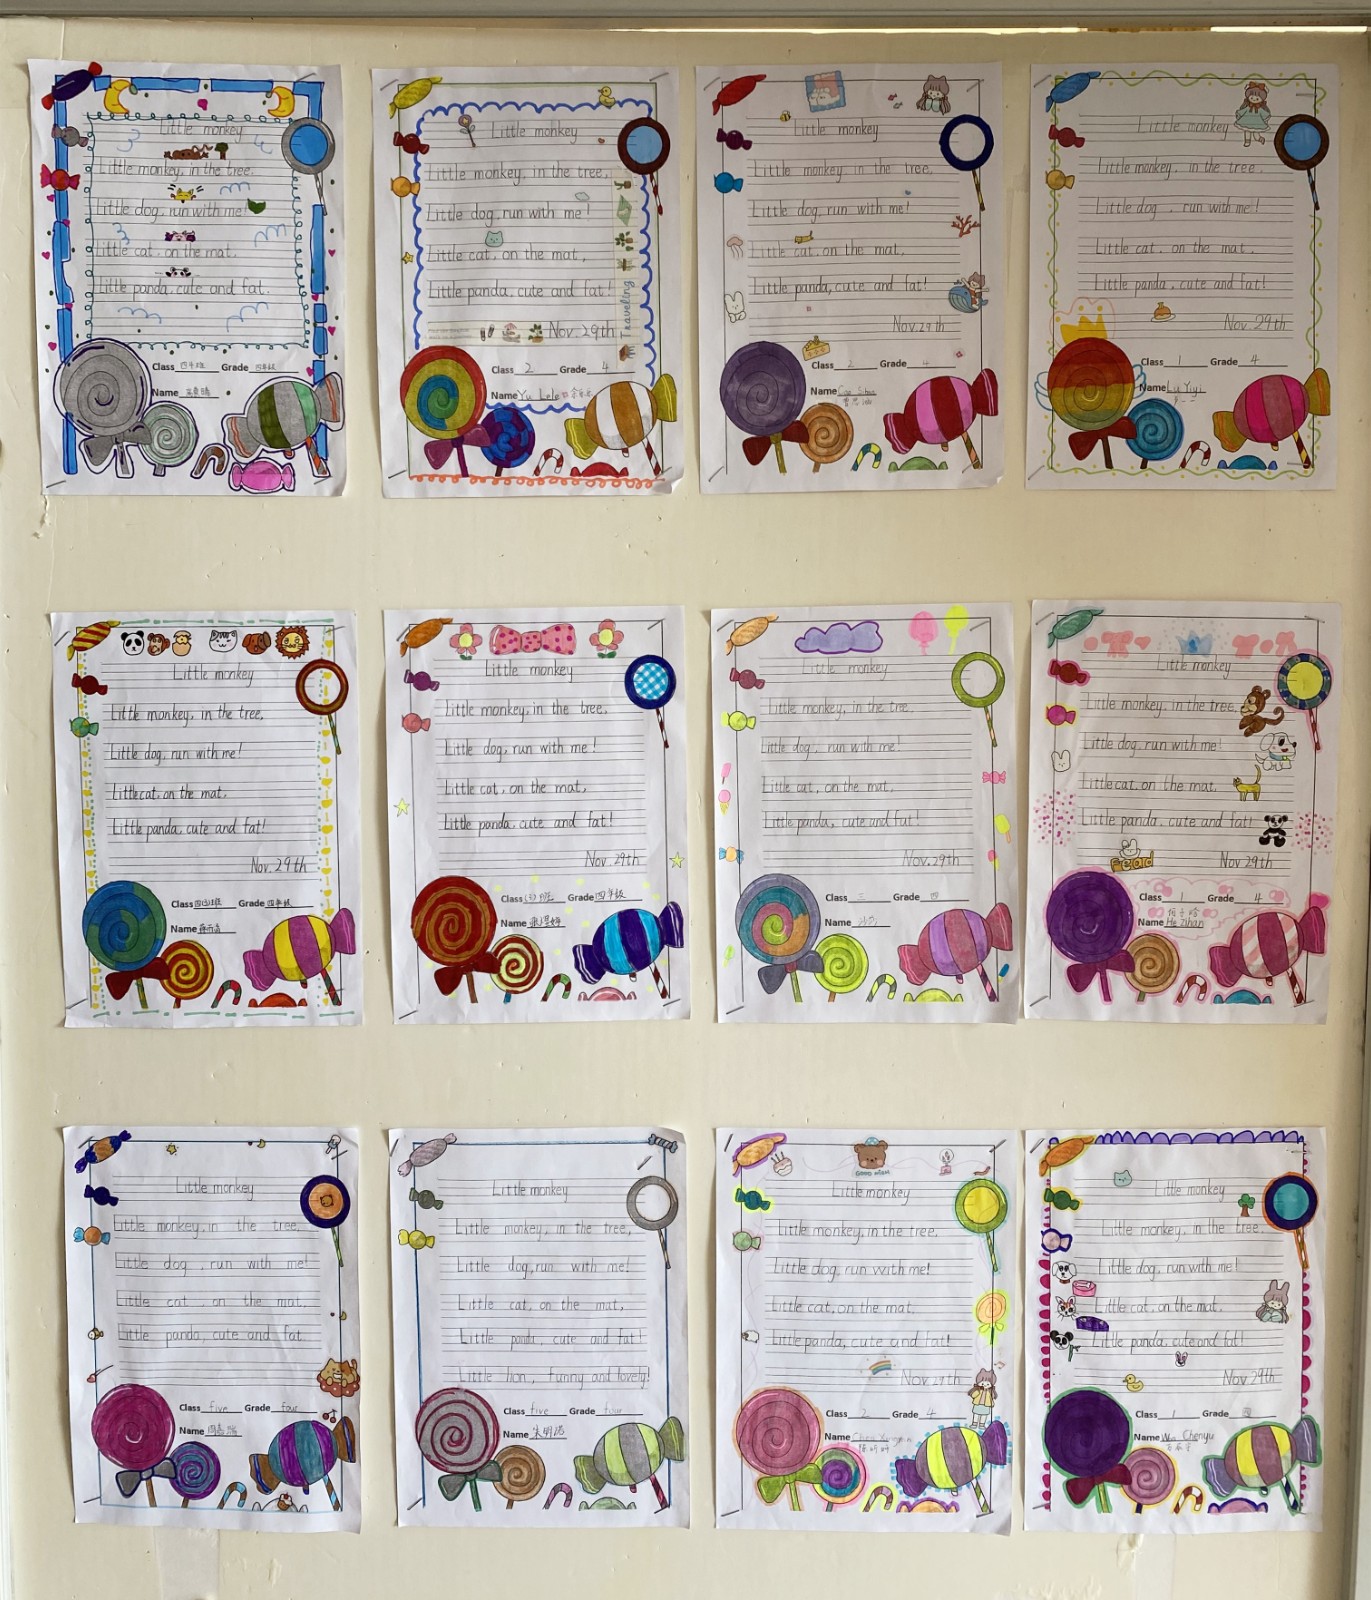 Little monkey
Little monkey, in the tree.
Little dog, run with me!
Little cat, on the mat.
Little panda, cute and fat.
Class 四年班 Grade 四年级
Name
Little monkey
Little monkey, in the tree,
Little dog, run with me!
Little cat, on the mat,
Little panda, cute and fat!
Traveling
Nov. 29th
Class 2 Grade 4
Name Yu Lele
Little monkey
Little monkey in the tree,
Little dog, run with me!
Little cat, on the mat,
Little panda, cute and fat!
Nov. 29th
Class 2 Grade 4
Name
Little monkey
Little monkey, in the tree,
Little dog , run with me!
Little cat, on the mat,
Little panda, cute and fat!
Nov. 29th
Class 1 Grade 4
Name Lu Yiyi
Little monkey
Little monkey, in the tree,
Little dog, run with me!
Little cat, on the mat,
Little panda, cute and fat!
Nov. 29th
Class Grade 四年级
Name
Little monkey
Little monkey, in the tree,
Little dog, run with me!
Little cat, on the mat,
Little panda, cute and fat!
Nov. 29th
Class Grade 四年级
Name
Little monkey
Little monkey, in the tree,
Little dog, run with me!
Little cat, on the mat,
Little panda, cute and fat!
Nov. 29th
Class 三 Grade 四
Name
Little monkey
Little monkey, in the tree,
Little dog, run with me!
Little cat, on the mat,
Little panda, cute and fat!
Nov 29th
Class 1 Grade 4
Name He Zihan
Little monkey
Little monkey, in the tree,
Little dog , run with me!
Little cat , on the mat,
Little panda, cute and fat
Class five Grade four
Name
Little monkey
Little monkey, in the tree,
Little dog, run with me!
Little cat, on the mat,
Little panda cute and fat!
Little lion, funny and lovely!
Class five Grade four
Name
GOOD WISH
Little monkey
Little monkey, in the tree,
Little dog, run with me!
Little cat, on the mat,
Little panda, cute and fat!
Nov. 29th
Class 2 Grade 4
Name Chen
Little monkey
Little monkey, in the tree,
Little dog, run with me!
Little cat, on the mat,
Little panda, cute and fat!
Nov 29th
Class 1 Grade 四
Name Chenyu